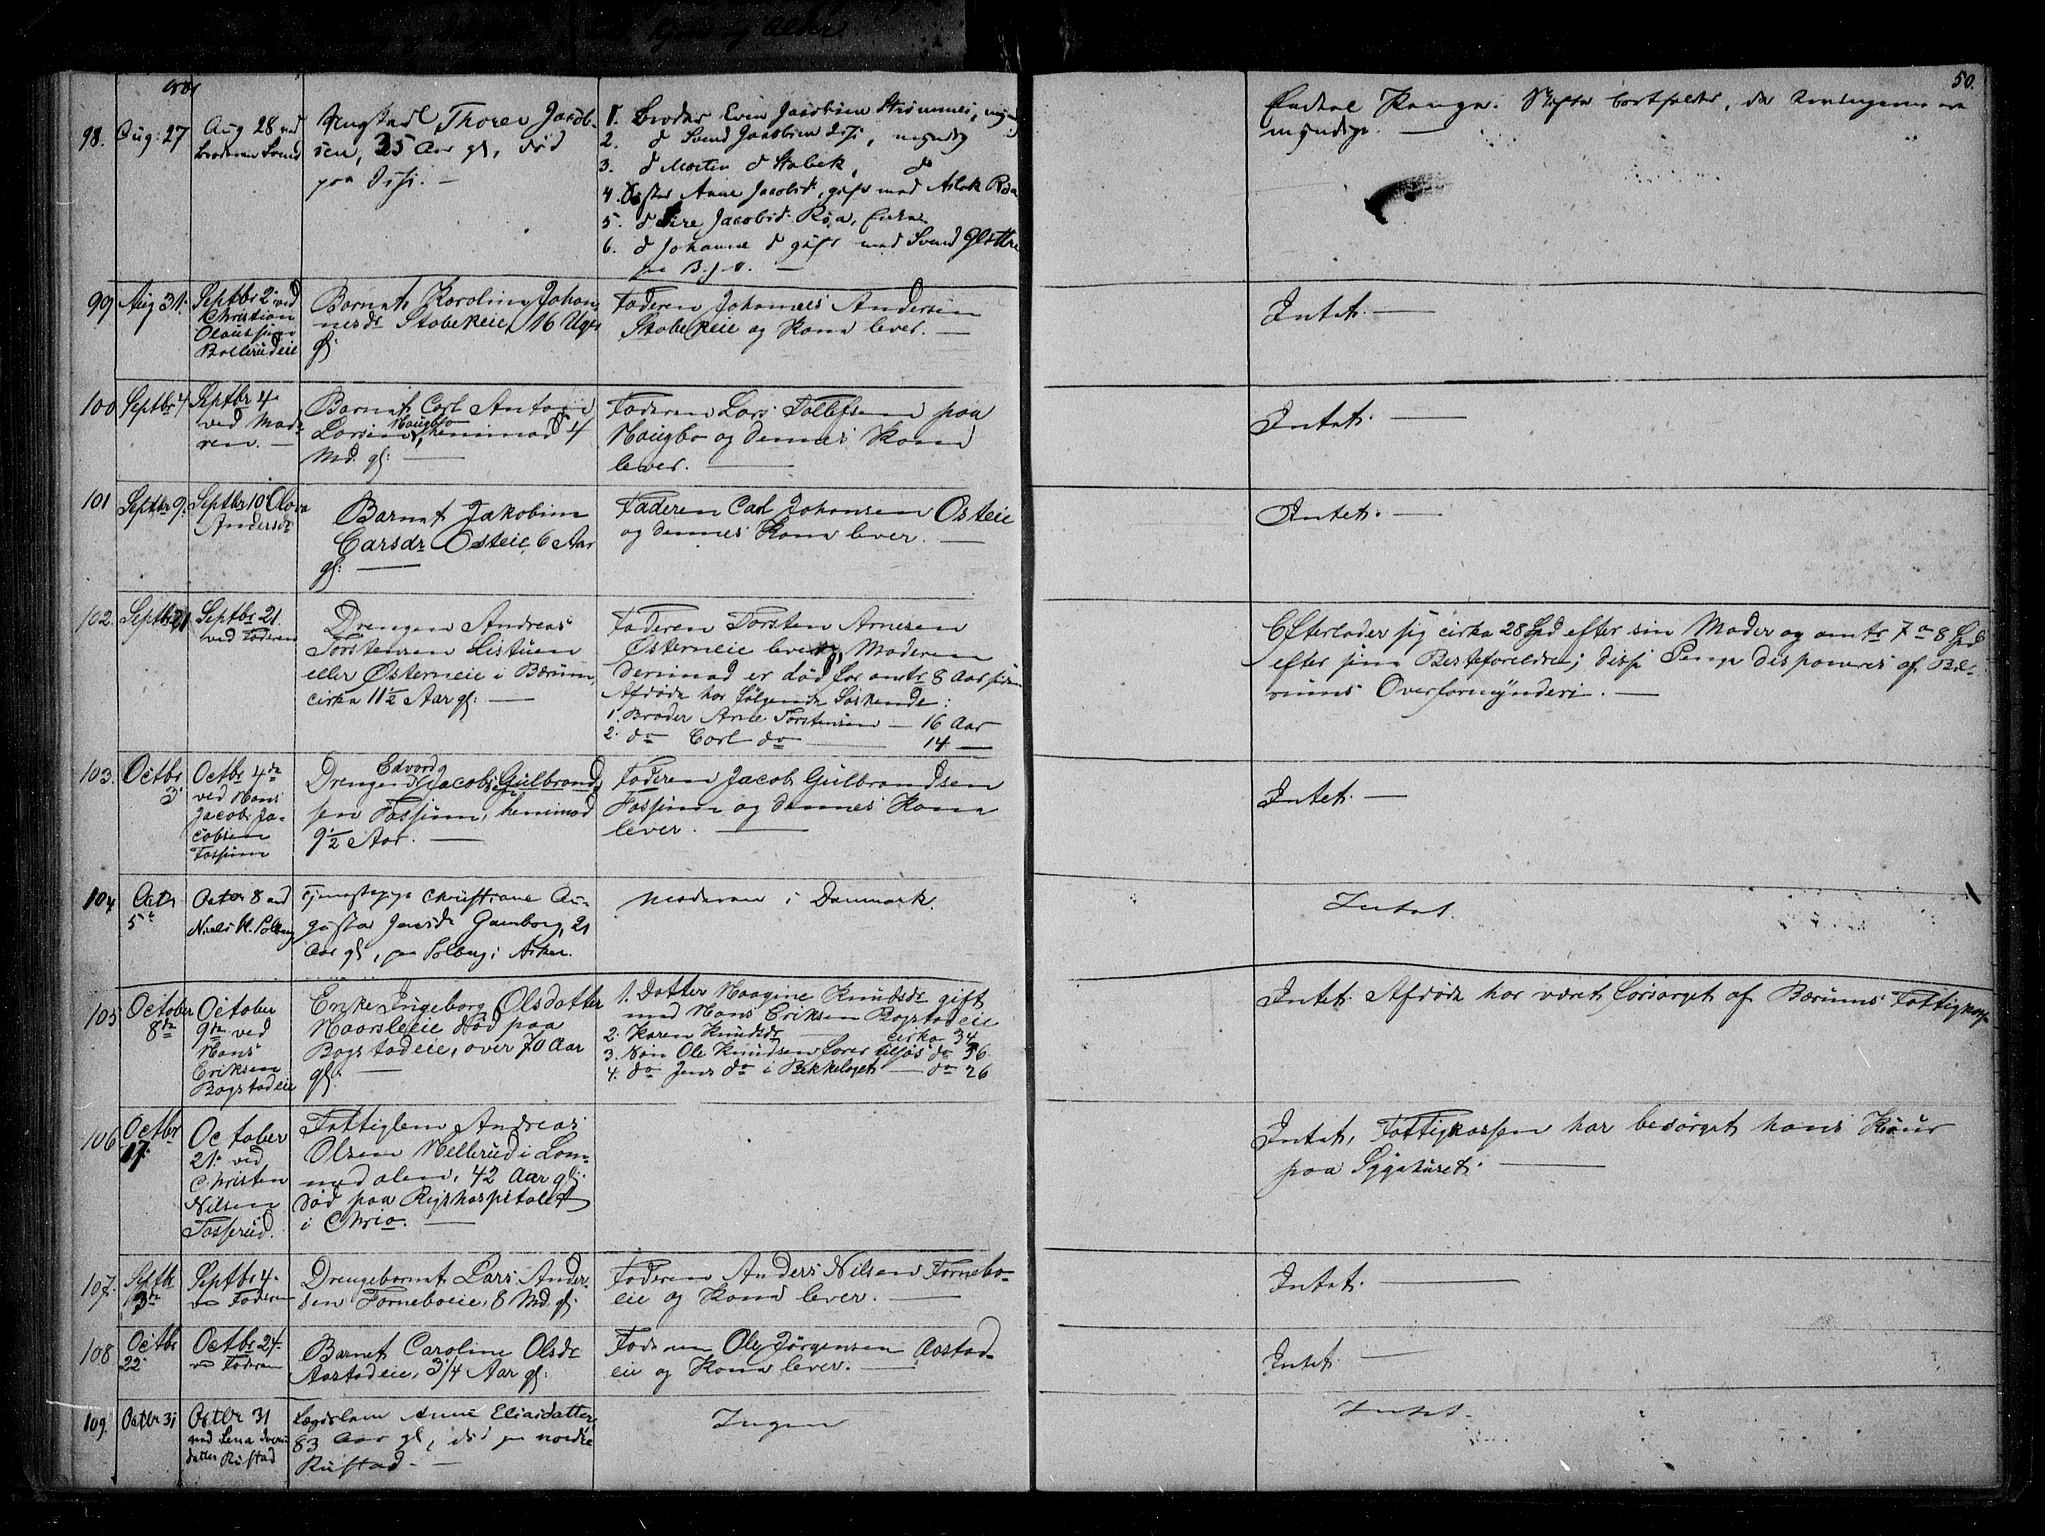 50.
98.
Aug: 27
Aug 28 ved
Broderen Svend
Thorer Jacob-
sen, 35 Aar gl, død
paa
1. Broder Even Jacobsen Strømnes, mynd
2. d Svend Jacobsen, myndig
3. d Morten d Stabek, do
4. Søster Anne Jacobsd, gift med Aslak Røa
5. d Sire Jacobsd. Røa, Enke
6. d Johanne d gift med Svend
Endeel Penge. Skifte bortfalder, da Arvingerne ere
myndige. —
99
Aug 31.
Septbr 2. ved
Christian
Olaussen
Ballerudeie
Barnet Karoline Johan
nesdr Stabekeie, 16 Uger
gl:
Faderen Johannes Andersen
Stabekeie og Kone lever. —
Intet. —
100
Septbr 4
Septbr 4.
ved Mode
ren. —
Barnet Carl Anton
Larsen Haugbo, henimod 4
Md. gl: —
Faderen Lars Tollefsen paa
Haugbo og dennes Kone
lever. —
Intet. —
101
Septbr 9.
Septbr 10 Olava
Andersdr
Barnet Jakobine
Carsdr Osteie, 6 Aar
gl: —
Faderen Carl Johansen Osteie
og dennes Kone lever. —
Intet. —
102.
Septbr 21
Septbr 21.
ved Faderen
Drengen Andreas
Torstensen Listuen
eller Østerneie i Bærum,
cirka 11½ Aar gl: —
Faderen Torsten Arnesen
Østerneie lever, Moderen
derimod er død for omtr 8 Aar siden
Afdøde har følgende Søskende:
1. Broder Arne Torstensen — 16 Aar
2. do Carl do — 14 —
Efterlader sig cirka 28 Spd efter sin Moder og omtr 7 a 8 Spd
efter sine Besteforeldre; disse Penge disponeres af Bæ-
rums Overformynderi. —
103.
Octbr
3
Octbr 4de
ved Hans
Jacob Ja-
cobsen
Fossum
Drengen Edvard Jacobsen Gulbrand
sen Fossum, henimod
9½ Aar. —
Faderen Jacob Gulbrandsen
Fossum og dennes Kone
lever. —
Intet. —
104
Octr
5te
Octbr 8 ved
Niels H. Solberg
Tjenestepige Christiane Au-
gusta Jensdr Gamborg, 21
Aar gl, paa Solberg i Asker.
Moderen i Danmark.
Intet.
105
October
8de
October
9de ved
Hans
Eriksen
Bogstadeie
Enke Ingeborg Olsdatter
Haarsleie død paa
Bogstadeie, over 70 Aar
gl: —
1. Datter Haagine Knudsdr gift
med Hans Eriksen Bogstadeie
2. Karen Knudsdr — cirka 34
3. Søn Ole Knudsen farer tilsøs do 36
4. do Jens do i Bekkelaget — do 26
Intet. Afdøde har været forsørget af Bærums Fattigkasse
106
Octbr
17.
October
21. ved
Christen
Nilsen
Tosserud.
Fattiglem Andreas
Olsen Mellerud i Lom-
medalen, 42 Aar gl:
død paa Rigshospitalet
i Chria. —
Intet, Fattigkassen har besørget hans Kuur
paa Sygehuset. —
107.
Septb
3de
Septbr 4.
ved Faderen
Drengebarnet Lars Ander-
sen Forneboeie, 8 Md. gl:
Faderen Anders Nilsen Fornebo-
eie og Kone lever. —
Intet. —
108
Octbr
22.
Octbr 24.
ved Faderen
Barnet Caroline Olsdr
Aastadeie, 3/4 Aar gl:
Faderen Ole Jørgensen Aastad-
eie og Kone lever. —
Intet. —
109.
Octbr 31
Octbr 31
ved Lena
datter Rustad
Lægdslem Anne Eliasdatter,
83 Aar gl, død paa nordre
Rustad. —
Ingen
Intet.